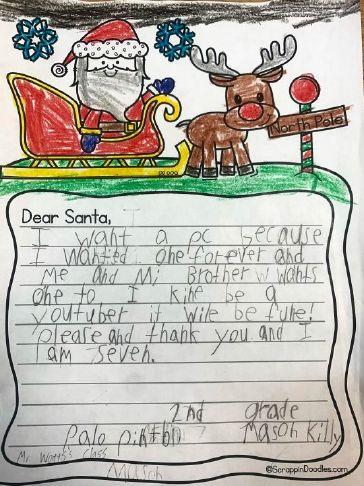 North Pole
Dear Santa,
I want a pc because
I wanted one forever and
Me and Mi Brother wants
one to I kine be a
youtuber it wile be fune!
please and thank you and I
am seven.
2nd grade
Palo pinto Mason Killy
Mr Watts's Class
©ScrappinDoodles.com